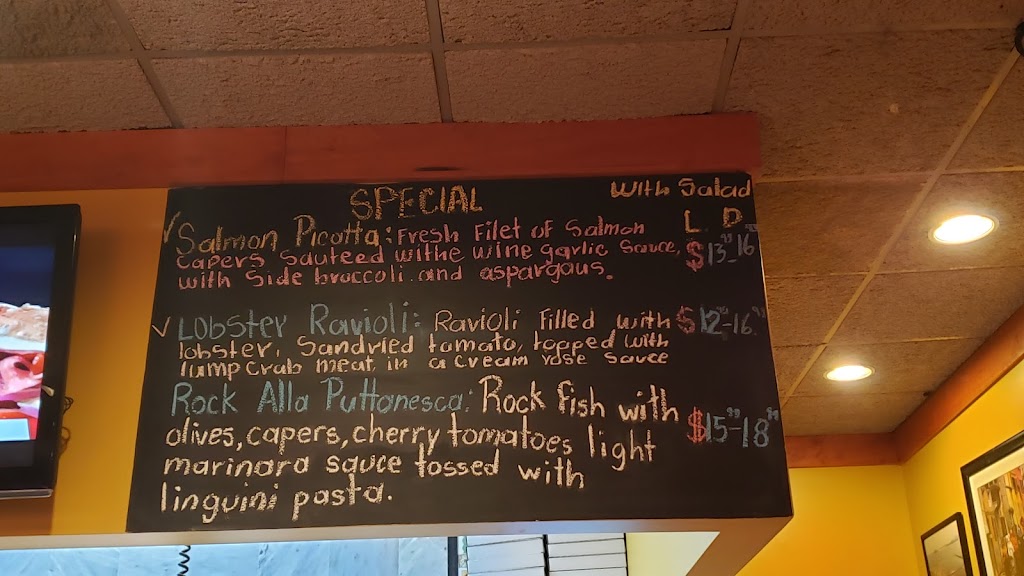 SPECIAL
With Salad
L. D.
✓ Salmon Picotta: Fresh Filet of Salmon
Capers Sauteed withe wine garlic Sauce, $13"-16"
with Side broccoli and aspargaus.
✓ Lobster Ravioli: Ravioli filled with $12"-16"
lobster, Sandried tomato, topped with
lump crab meat in a cream rose sauce
Rock Alla Puttanesca: Rock fish with
olives, capers, cherry tomatoes light $15"-18"
marinara sauce tossed with
linguini pasta.